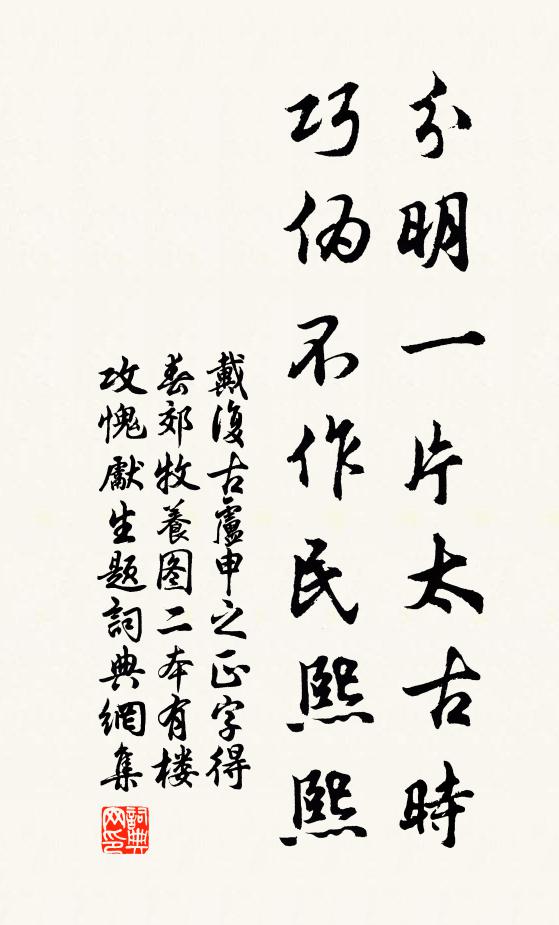 分明一片太古時
巧伪不作民熙熙
戴復古盧申之正字得
春郊牧養图二本有楼
攻愧獻生题詞典網集
詞典网印